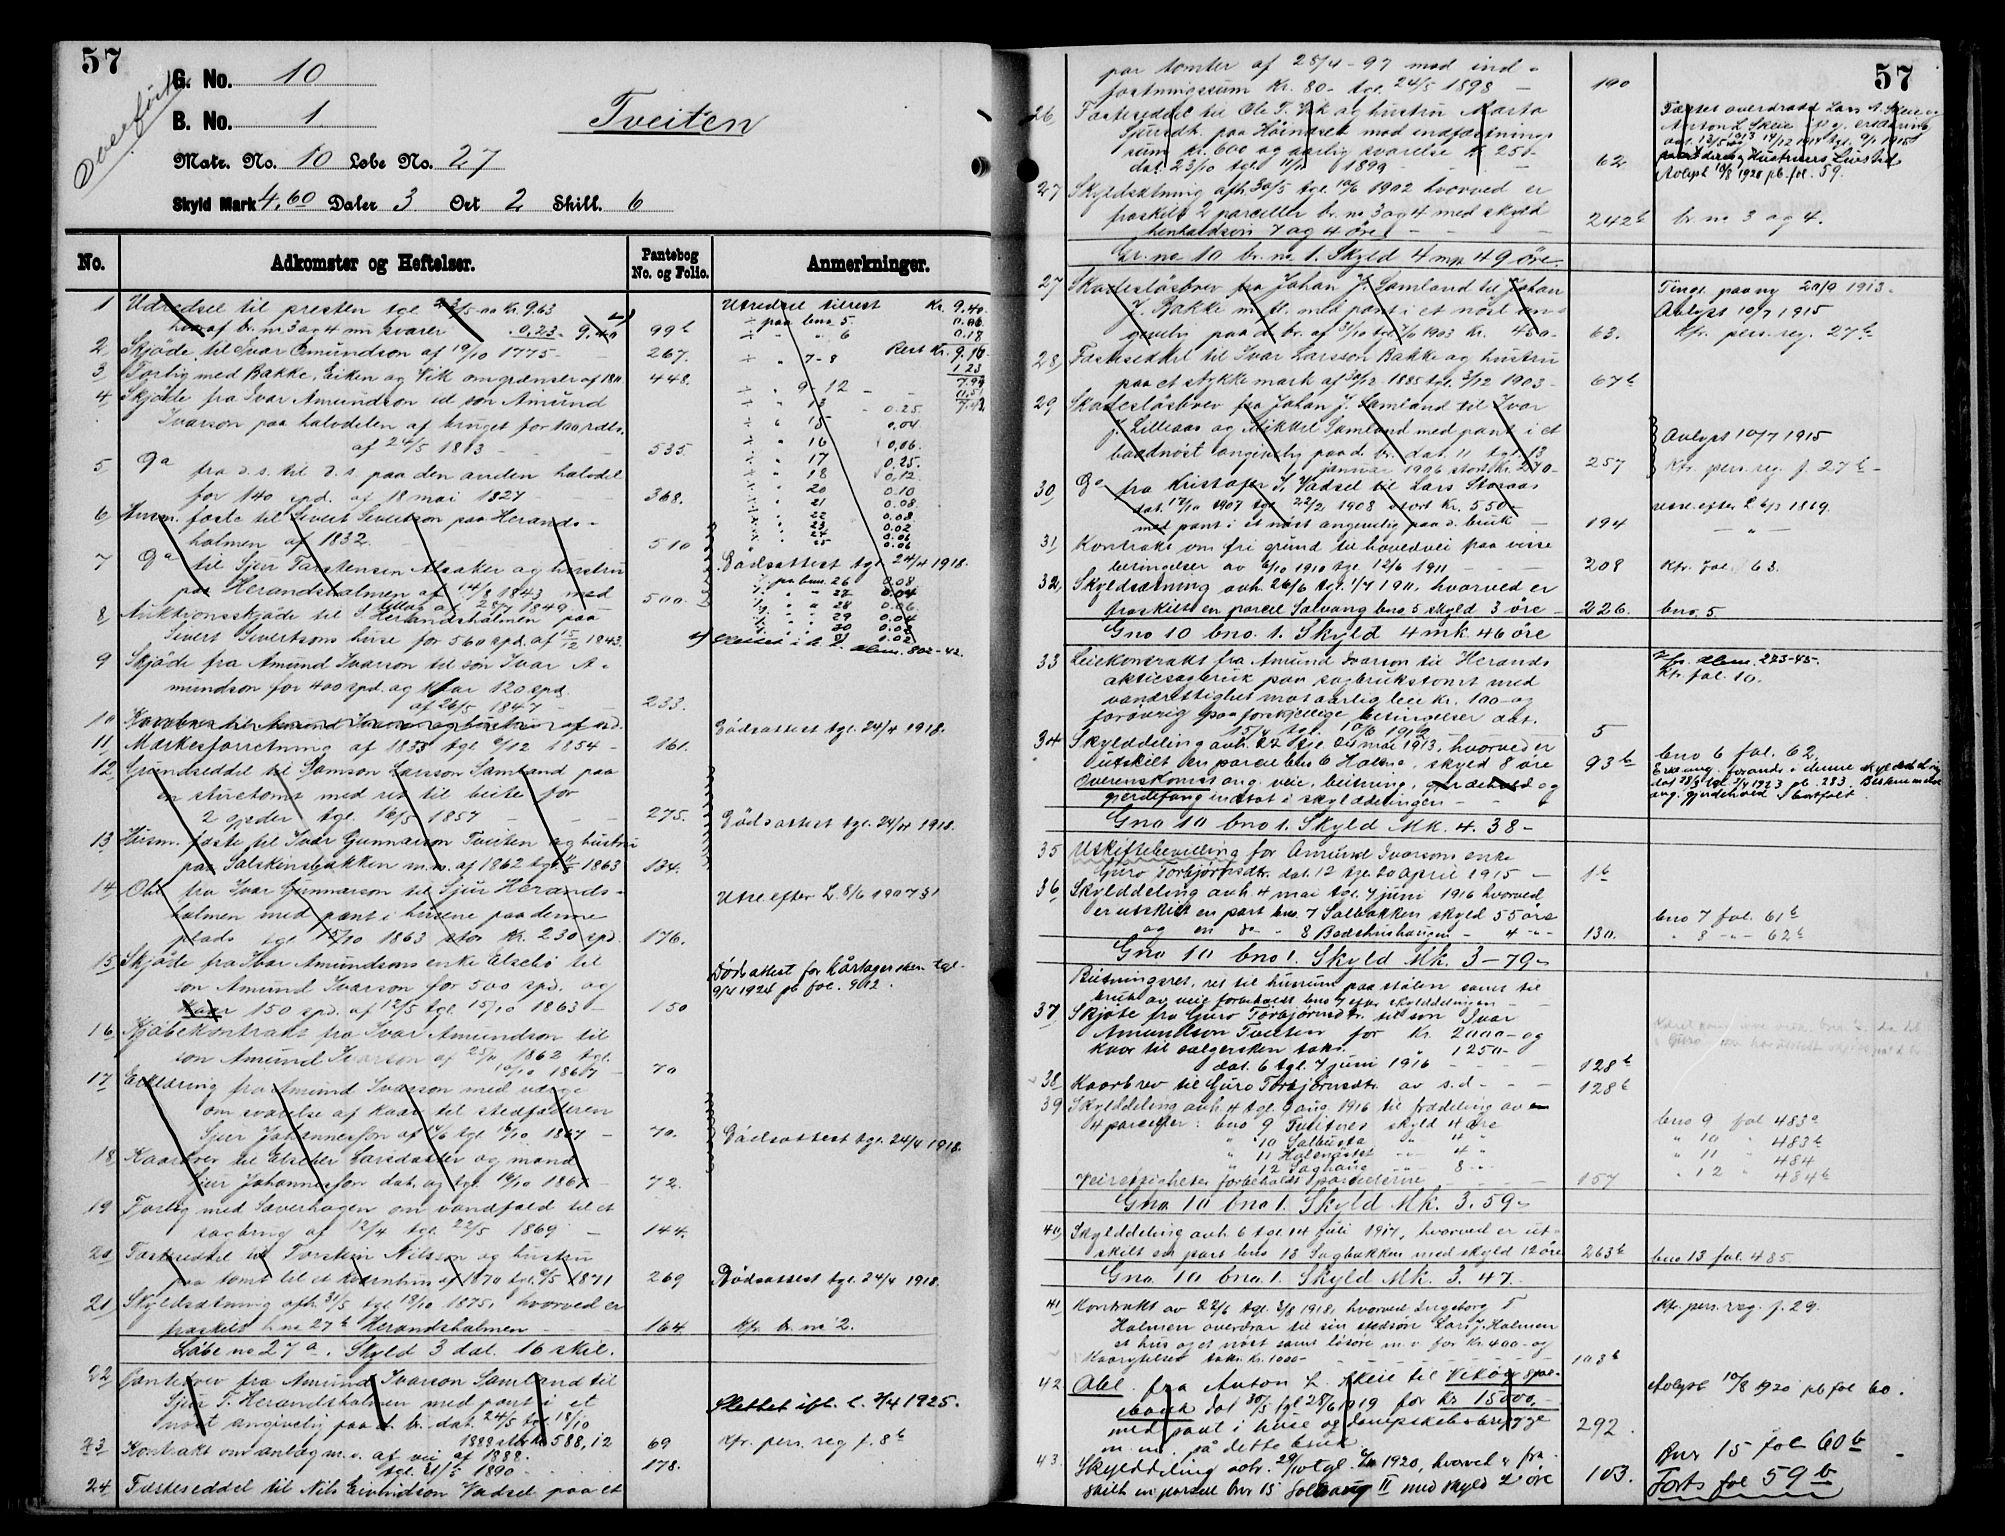 57
Overført
G. No. 10
B. No. 1
Tveiten
Matr. No. 10 Løbe No. 27
Skyld Mark 4.60 Daler 3 Ort 2 Skill. 6
No. Adkomster og Heftelser. Pantebog No. og Folio. Anmerkninger.
1 Udredsel til presten tgl Kr. 9.63
heraf br. nr 3 og 4 mn svarer 0.23 9.40 99b
2 Skjøde til Ivar Omundson af 19/10 1775 267.
3 Forlig med Bakke, Eiken og Vik om grænser af 1811 448.
4 Skjøde fra Ivar Amundson til søn Amund
Ivarson paa halvdelen af bruget for 100 rdlr.
af 24/5 1813 535
5 Do fra d.s. til d.s. paa den anden halvdel
for 140 spd. af 18 mai 1827 368.
6 Husm. fæste til Sivert Sivertson paa Herands-
holmen af 1832. 510
7 Do til Sjur Torstensen Alsaker og hustru
paa Herandsholmen af 14/8 1843 med
tillæg af 28/7 1849 500.
8 Auktionsskjøde til S. Herandsholmen paa
Sivert Sivertsons huse for 560 spd. af 15/12 1843.
9 Skjøde fra Amund Ivarson til søn Ivar A-
mundson for 400 spd. og kaar 120 spd.
af 26/5 1847 233.
10 Kaarbrev til Amund Ivarson og hustru af s.d.
11 Markesforretning af 1853 tgl 9/12 1854 161.
12 Grundseddel til Samson Larsson Samland paa
en stuetomt med ret til beite for
2 gjeder tgl. 16/5 1857 275.
13 Husm. fæste til Ivar Gunnarson Tveiten og hustru
paa Salskinsbakken m.m. af 1862 tgl 1863 134.
14 Obl. fra Ivar Gunnarson til Sjur Herands-
holmen med pant i husene paa denne
plads tgl 15/10 1863 stor Kr. 230 spd. 176.
15 Skjøde fra Ivar Amundsons enke Elsebø til
søn Amund Ivarson for 500 spd. og
Kaar 150 spd. af 12/5 tgl 15/10 1863 150
16 Kjøbekontrakt fra Ivar Amundson til
søn Amund Ivarson af 25/11 1862 tgl.
10/10 1867 70
17 Erklæring fra Amund Ivarson med værge
om svarelse af Kaar til stedfaderen
Sjur Johannesson af 14/6 tgl 10/10 1867 70.
18 Kaarbrev til Elsebø Larsdatter og mand
Sjur Johannesson dat. og tgl. 10/10 1867 72.
19 Forlig med Saverhagen om vandfald til et
sagbrug af 12/4 tgl. 22/5 1869 144.
20 Fæsteseddel til Torstein Nilsson og hustru
paa tomt til et kvernhus af 1870 tgl. 9/5 1871 269
21 Skyldsætning afh. 31/5 tgl 19/10 1875, hvorved er
fraskilt l. no 27b Herandsholmen 164.
Løbe no 27a. Skyld 3 dal. 16 skil.
22 Pantebrev fra Amund Ivarson Samland til
Sjur T. Herandsholmen med pant i et
nøst angivelig paa d. br. dat. 24/5 tgl 18/10
1888 stor kr 588,12 69
23 Kontrakt om anlæg m.v. af vei af 1888.
tgl. 21/5 1890 178.
24 Fæsteseddel til Nils Eivindson Vadsel paa et
Utredsel tilrest Kr. 9.40
÷ paa bno 5. 0.06
÷ " " 6 0.18
Rest Kr. 9.16
÷ " 7-8 1.23
7.93
÷ " 9-12
÷ " 13 0.25
÷ " 15 0.04
÷ " 16 0.06.
÷ " 17 0.25.
÷ " 18 0.12.
÷ " 20 0.10
" 21 0.08
" 22 0.08
" 23 0.02
" 24 0.06
" 25 0.06
Dødsattest tgl. 24/4 1918.
÷ paa bno. 26 0.08
" " 27 0.04
" " 28 0.06
" " 29 0.04
" " 30 0.08
31 1.02
Dødsattest tgl. 24/4 1918.
Dødsattest tgl. 24/4 1918.
Utre. efter L. 8/6 1907 § 1
Dødsattest for kårtagersken tgl.
9/4 1924 pb fol. 902.
Dødsattest tgl. 24/4 1918.
Dødsattest tgl. 24/4 1918.
Kfr. br. no 2.
Slettet ift. l. 3/4 1925.
Kfr. pers. reg f. 8b
57
par tomter af 28/4-97 mod ind-
fæstningssum Kr. 80- tgl. 24/5 1898 190
26 Fæsteseddel til Ole T. Vik og hustru Marta
Sjursdt. paa Haandset mod indfæstnings
sum kr. 600 og aarlig svarelse kr 25
dat. 23/10 tgl. 1899 62
Fæstet overdradd Lars A. Skeie og
Anton L Skeie
Avlyst 10/8 1920 pb. fol. 59.
27 Skyldsætning afh. 30/5 tgl. 10/6 1902 hvorved er
fraskilt 2 parceller br. no 3 og 4 med skyld
henholdsvis 7 og 4 øre 242b br. no 3 og 4.
Gr. no 10 br. no 1. Skyld 4 mrk 49 øre.
27 Skadesløsbrev fra Johan J. Samland til Johan
J. Bakke m. fl. med pant i et nøst an-
givelig paa d. br. af 31/10 tgl 1903 Kr. 400- 63.
Tingl. paany 20/9 1913.
Avlyst 10/7 1915
Kfr. pers. reg. 27b
28 Fæsteseddel til Ivar Larsson Bakke og hustru
paa et stykke mark af 30/12 1885 tgl. 3/12 1903 67b
29 Skadesløsbrev fra Johan J. Samland til Ivar
J. Lilleaas og Mikkel Samland med pant i et
baadnøst angivelig paa d. br. dat. 11 tgl. 13
januar 1906 stort kr. 270- 257
Avlyst 10/7 1915
Kfr. pers. reg. f. 27b
30 Do fra Kristofer S. Vadsel til Lars Storaas
dat. 17/10 1907 tgl. 22/2 1908 stort Kr. 550-
med pant i et nøst angivelig paa d. bruk 194
31 Kontrakt om fri grund til hovedvei paa visse
betingelser av 6/10 1910 tgl. 12/6 1911 208 Kfr. fol. 63.
32 Skyldsætning avh. 26/6 tgl. 1/7 1911, hvorved er
fraskilt en parcel Solvang bno 5 skyld 3 øre 226. bno. 5
Gno 10 bno. 1. Skyld 4 mk. 46 øre
33 Leiekontrakt fra Amund Ivarson til Herands
aktiesagbruk paa sagbrukstomt med
vandrettighet mot aarlig leie kr. 100- og
forøvrig paa forskjellige betingelser dat.
15/4 tgl. 10/6 1912 5
Kfr. fol. 10.
34 Skylddeling avh. 27 tgl. 24 mai 1913, hvorved er
utskilt en parcel bno 6 Holmo, skyld 8 øre 93b bno 6 fol. 62.
Overenskomst ang. veie, beitning, gjærdehold og
gjerdefang indtat i skylddelingen
Gno 10 bno 1. Skyld Mk. 4. 38-
35 Uskiftebevilling for Amund Ivarsons enke
Guro Torbjørnsdtr. dat. 12 tgl. 20 april 1915 1b
36 Skylddeling avh. 4 mai tgl. 7 juni 1916 hvorved
er utskilt en part bno. 7 Solbakken skyld 55 øre bno 7 fol. 61b
og en do " 8 Badstushaugen " 4 " 130. " 8 " 62b
Gno 10 bno 1. Skyld Mk. 3-79-
Beitningsret, ret til husrum paa stølen samt til
bruk av veie forbeholdt bno 7 efter skylddelingen
37 Skjøte fra Guro Torbjørnsdtr. til søn Ivar
Amundson Tveiten for Kr. 2000- og
kaar til sælgersken takst. " 1250-
dat. 6 tgl. 7 juni 1916 128b
38 Kaarbrev til Guro Torbjørnsdtr. av s.d. 128b
39 Skylddeling avh. 4 tgl. 9 aug. 1916 til fradeling av
4 parceller: bno 9 Tveitnes skyld 4 øre bno 9 fol 483a
" 10 Solbusta " 4 " " 10 " 483b
" 11 Holmastet " 4 " " 11 " 484
" 12 Saghaug " 8 " " 12 " 484b
Veirettigheter forbeholdt parcellerne 157
Gno 10 bno 1. Skyld Mk. 3. 59-
40 Skylddeling avh. 6 tgl. 14 juli 1917, hvorved er ut-
skilt en part bno 13 Sagbakken med skyld 12 øre 263b bno 13 fol. 485.
Gno 10 bno 1. Skyld Mk. 3. 47.
41 Kontrakt av 22/6 tgl. 3/8 1918, hvorved Ingeborg T
Holmen overdrar til sin stedsøn Lars J. Holmen
et hus og et nøst samt løsøre m.v for kr. 400- og
Kaarytelser takst kr. 1000- 103b
Kfr. pers. reg. f. 29.
42 Obl. fra Anton L. Skeie til Vikør spar-
ebank dat 30/5 tgl 28/6 1919 for kr 15000,-
med pant i huse og dampskibsbrygge
m.m. på dette bruk 292.
Avlyst 10/8 1920 pb fol 60.
43. Skylddeling avh. 29/10 tgl. 1920, hvorved er fra-
skilt en parsell bnr 15 Solhaug II med skyld 2 øre 103.
Bnr 15 fol 60b
Forts fol 59b